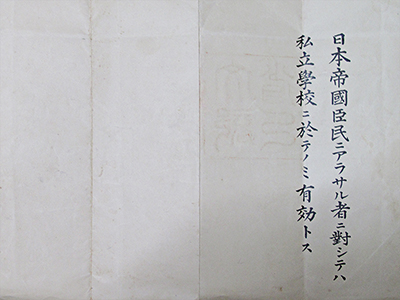 日本帝國臣民ニアラサル者ニ對シテハ
私立學校ニ於テノミ有効トス